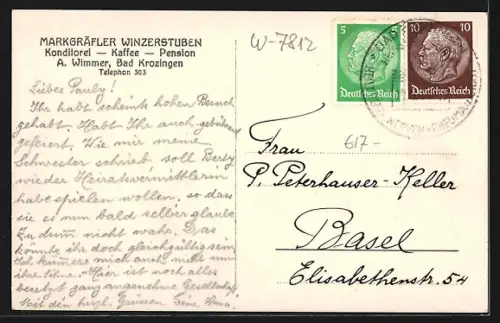 MARKGRÄFLER WINZERSTUBEN
Konditorei — Kaffee — Pension
A. Wimmer, Bad Krozingen
Telephon 303
W-7812
5
10 10
Deutsches Reich
Deutsches Reich
617-
Liebes Pauly!
Ihr habt scheints hohen Besuch
gehabt. Habt Ihr auch gebührend
gefeiert. Wie mir meine
Schwester schrieb soll
wieder Heiratsvermittlerin
habt spielen wollen, so dass
sie es nun bald selber glaubt
nicht wahr. Das
könnte ihr doch gleichgültig sein,
Ich kümmere mich auch nicht um
ihre Söhne. Hier ist noch alles
besetzt ganz angenehme Gesellschaft.
Mit den herzl. Grüssen Eure Anna.
Frau
P. Peterhauser-Keller
Basel
Elisabethenstr. 54